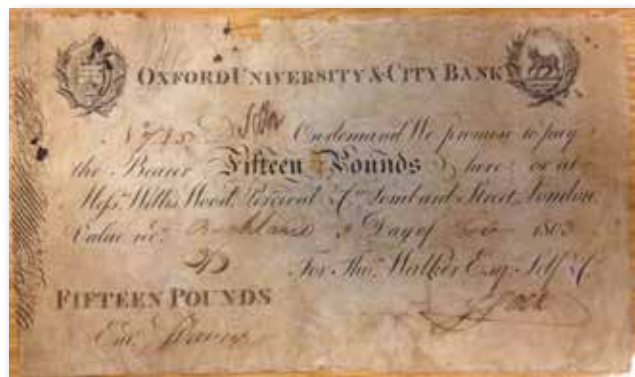 OXFORD UNIVERSITY & CITY BANK
On demand We promise to pay
the Bearer Fifteen Pounds here or at
Messrs Willis Wood Percival & Co Lombard Street, London
Value recd Day of 1803
For Thos Walker Esq. Self & Co
FIFTEEN POUNDS
Entd